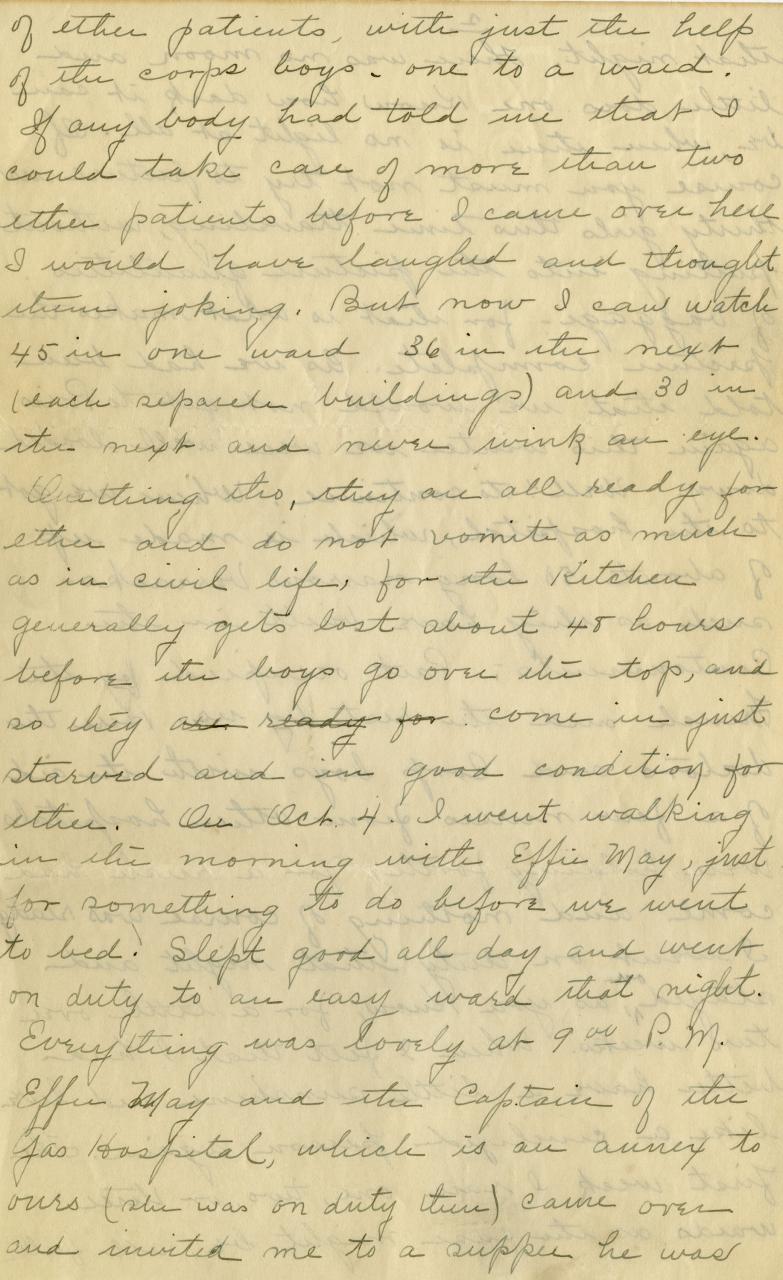 of ether patients, with just the help
of the corps boys - one to a ward.
If any body had told me that I
could take care of more than two
ether patients before I came over here
I would have laughed and thought
them joking. But now I can watch
45 in one ward 36 in the next
(each separate buildings) and 30 in
the next and never wink an eye.
One thing tho, they are all ready for
ether and do not vomite as much
as in civil life, for the Kitchen
generally gets lost about 48 hours
before the boys go over the top, and
so they are ready for come in just
starved and in good condition for
ether. On Oct. 4. I went walking
in the morning with Effie May, just
for something to do before we went
to bed. Slept good all day and went
on duty to an easy ward that night.
Everything was lovely at 9 00 P. M.
Effie May and the Captain of the
Gas Hospital, which is an annex to
ours (she was on duty there) came over
and invited me to a supper he was